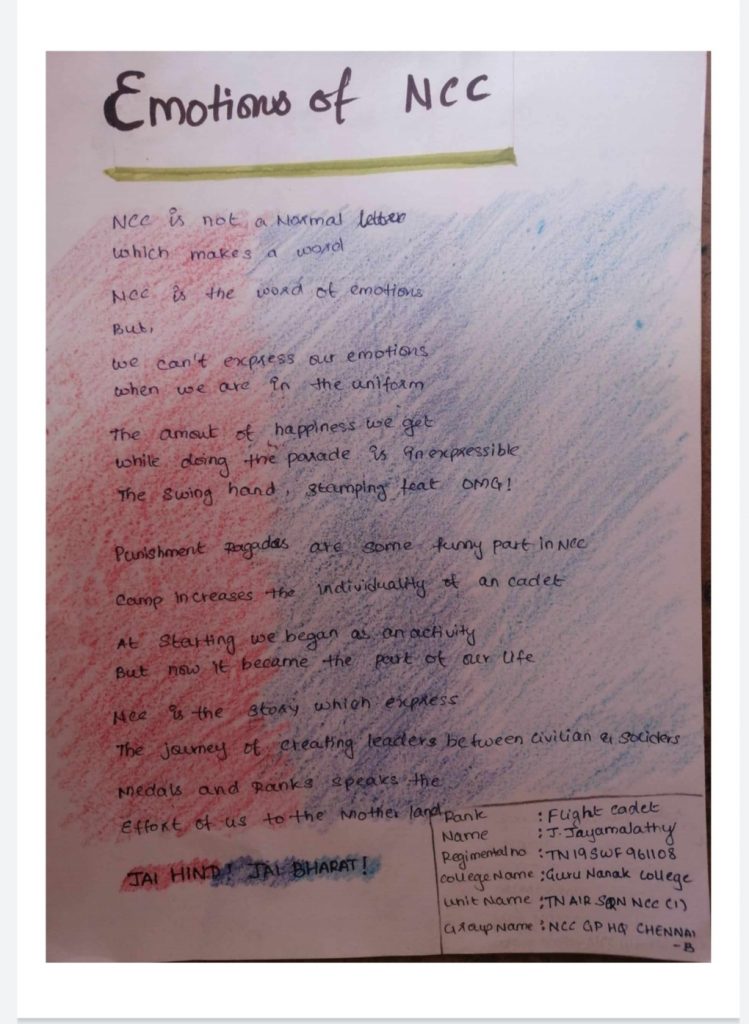 Emotions of NCC
NCC is not a Normal letter
which makes a word
NCC is the word of emotions
But,
we can't express our emotions
when we are in the uniform
The amout of happiness we get
while doing the parade is inexpressible
The swing hand, stamping feat OMG!
Punishment Ragadas are some funny part in NCC
Camp increases the individuality of an cadet
At starting we began as an activity
But now it became the part of our life
NCC is the story which express
The journey of creating leaders between civilian & soliders
Medals and Ranks speaks the
Effort of us to the Mother land
JAI HIND! JAI BHARAT!
Rank : Flight cadet
Name : J. Jayamalathy
Regimental no : TN19SWF961108
college Name : Guru Nanak college
unit Name : TN AIR SQN NCC (1)
Group Name : NCC GP HQ CHENNAI
-B